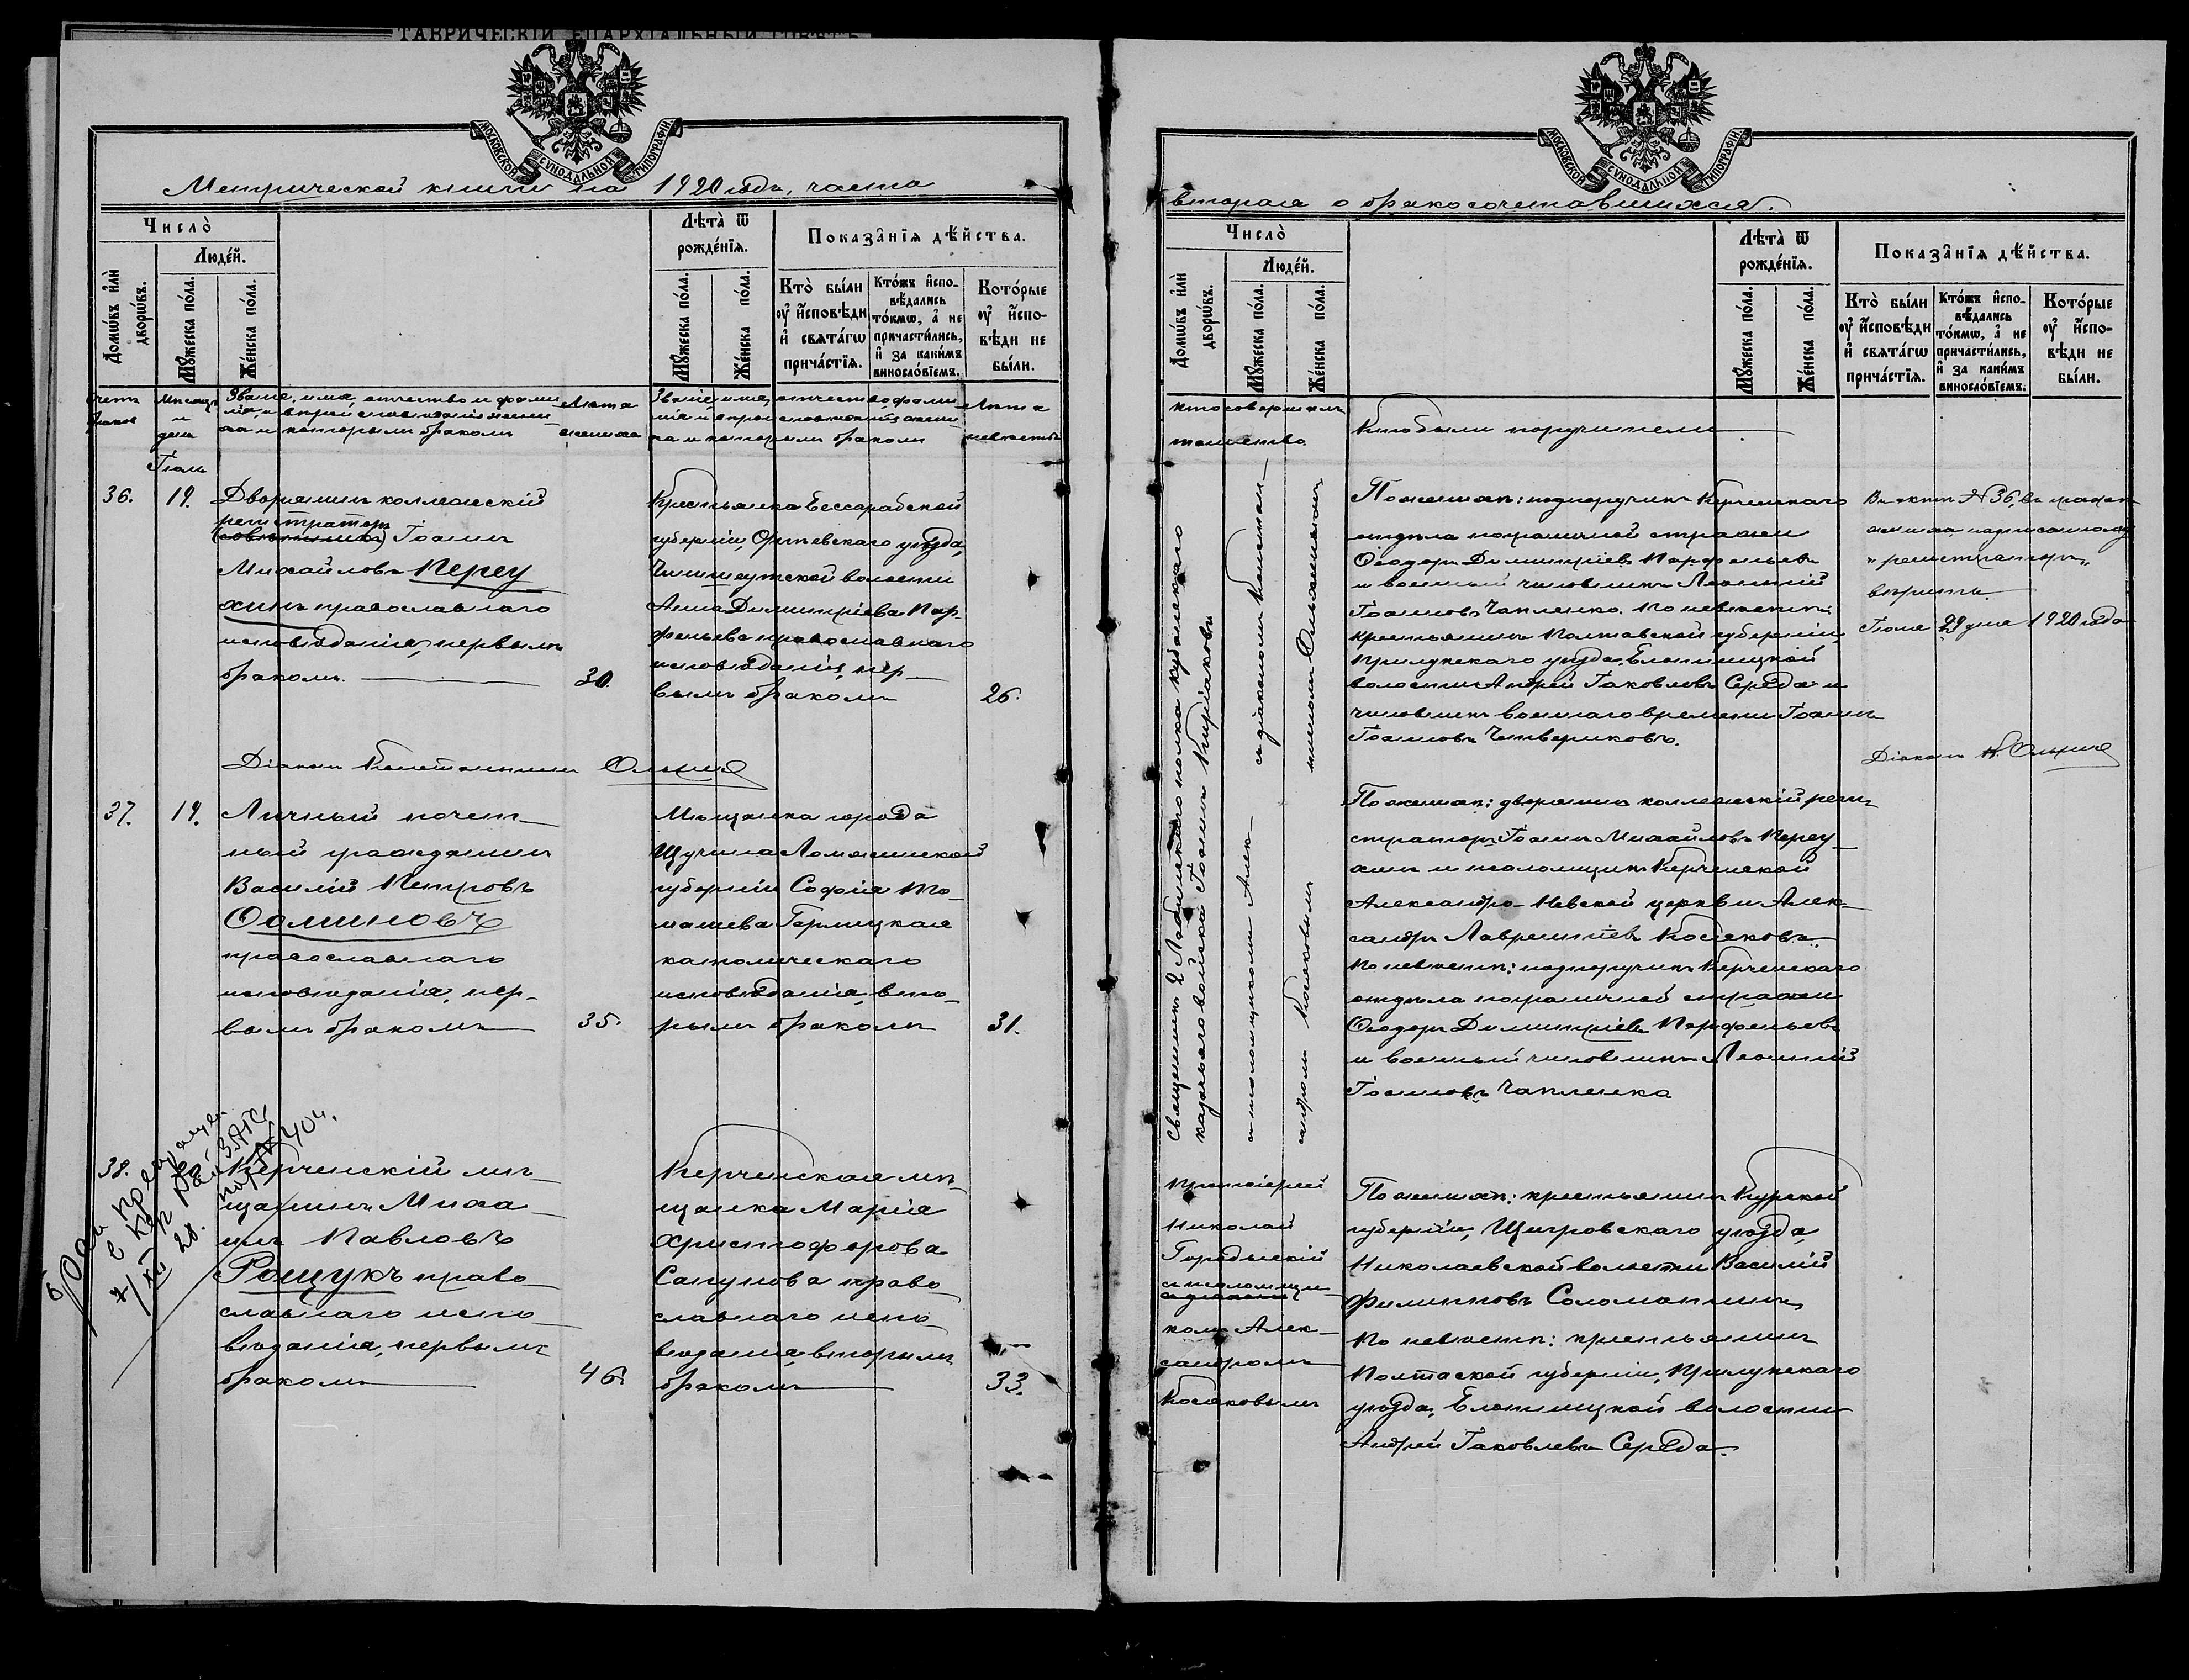 ТАВРИЧЕСКІЙ ЕПАРХІАЛЬНЫЙ
МОСКОВСКОЙ СѴНОДАЛЬНОЙ ТИПОГРАФІИ
Метрической книги на 1920 годъ, часть
Число̀
Людéй.
Домѡ́въ и҆лѝ дворѡ́въ.
Мꙋ́жеска по́ла.
Же́нска по́ла.
Лѣта̀ ѿ рожде́нїѧ.
Мꙋ́жеска по́ла.
Же́нска по́ла.
Показа̑нїѧ дѣ́йства.
Кто̀ бы́ли ᲂу҆ и҆́сповѣди и҆ свѧта́гѡ прича́стїѧ.
Кто́жъ и҆спо-
вѣ́дались
то́кмѡ, а҆ не
причасти́лись,
и҆ за каки́мъ
виносло́вїемъ.
Кото́рые ᲂу҆ и҆́спо-
вѣди не
бы́ли.
Счетъ браков
Мѣсяцъ и день
Званіе, имя, отчество и фами
лія, и вѣроисповѣданіе жени
ха и которымъ бракомъ
Лѣта жениха
Званіе имя, отчество, фами
лія и вѣроисповѣданіе
и которымъ бракомъ
Лѣта невѣсты
Іюль
36.
19.
Дворянинъ коллежскій
регистраторъ
Іоаннъ
Михайловъ Переу
хинъ православнаго
исповѣданія, первымъ
бракомъ.
30.
Крестьянка Бессарабской
губерніи, Оргѣевскаго уѣзда,
волости
Анна Димитріева Пар-
феньева православнаго
исповѣданія, пер-
вымъ бракомъ
26.
Діаконъ Константинъ
37.
19.
Личный почет-
ный гражданинъ
Василій Петровъ
Ѳоминовъ
православнаго
исповѣданія, пер-
вымъ бракомъ
35.
Мѣщанка города
Щучина Ломжинской
губерніи Софія То-
машева Гарлицкая
католическаго
исповѣданія, вто-
рымъ бракомъ
31.
38.
Керченскій мѣ-
щанинъ Миха-
илъ Павловъ
Рощукъ право-
славнаго испо-
вѣданія, первымъ
бракомъ
46.
Керченская мѣ-
щанка Марія
Христофорова
Сапунова право-
славнаго испо-
вѣданія, вторымъ
бракомъ
33.
Брак
в Кер Рай ЗАГС
7/XII 28.
МОСКОВСКОЙ СѴНОДАЛЬНОЙ ТИПОГРАФІИ
вторая о бракосочетавшихся.
Число̀
Людéй.
Домѡ́въ и҆лѝ дворѡ́въ.
Мꙋ́жеска по́ла.
Же́нска по́ла.
Лѣта̀ ѿ рожде́нїѧ.
Мꙋ́жеска по́ла.
Же́нска по́ла.
Показа̑нїѧ дѣ́йства.
Кто̀ бы́ли ᲂу҆ и҆́сповѣди и҆ свѧта́гѡ прича́стїѧ.
Кто́жъ и҆спо-
вѣ́дались
то́кмѡ, а҆ не
причасти́лись,
и҆ за каки́мъ
виносло́вїемъ.
Кото́рые ᲂу҆ и҆́спо-
вѣди не
бы́ли.
Кто совершалъ
таинство
Кто были поручители
Священникъ 2 Лабинскаго полка Кубанскаго
казачьяго войска Іоаннъ Киріаковъ
съ діакономъ Констан-
тиномъ
и псаломщикомъ Алек-
сандромъ Косяковымъ
По женихѣ: подпоручикъ Керченскаго
отдѣла пограничной стражи
Ѳеодоръ Димитріевъ Парфеньевъ
и военный чиновникъ Леонтій
Іоанновъ Чапленко. По невѣстѣ:
крестьянинъ Полтавской губерніи,
Прилукскаго уѣзда,
волости Андрей Іаковлевъ Середа и
чиновникъ военнаго времени Іоаннъ
Іоанновъ Четвериковъ.
Въ актѣ № 36, въ графѣ
жениха, надписанному
"регистраторъ"
вѣрить.
Іюля 29 дня 1920 года
Діаконъ К.
По женихѣ: дворянинъ коллежскій реги-
страторъ Іоаннъ Михайловъ Переу-
хинъ и псаломщикъ Керченской
Александро-Невской церкви Алек-
сандръ Лаврентіевъ Косяковъ.
По невѣстѣ: подпоручикъ Керченскаго
отдѣла пограничной стражи
Ѳеодоръ Димитріевъ Парфеньевъ
и военный чиновникъ Леонтій
Іоанновъ Чапленко
Протоіерей
Николай
съ псаломщи-
комъ Алек-
сандромъ
Косяковымъ
По женихѣ: крестьянинъ Курской
губерніи, Щигровскаго уѣзда,
Николаевской волости Василій
Филипповъ Соломатинъ
По невѣстѣ: крестьянинъ
Полтаской губерніи, Прилукскаго
уѣзда, волости
Андрей Іаковлевъ Середа.